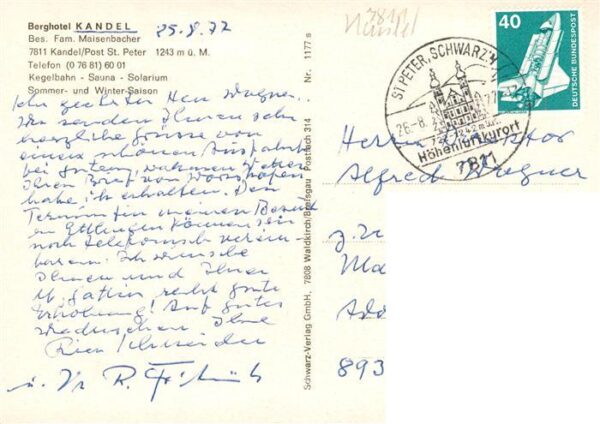 Berghotel KANDEL
25.8.77
Bes. Fam. Maisenbacher
7811 Kandel/Post St. Peter 1243 m ü. M.
Telefon (0 76 81) 60 01
Kegelbahn - Sauna - Solarium
Sommer- und Winter-Saison
geehrter Herr Wagner
Wir senden Ihnen sehr
herzliche Grüsse von
einem schönen Ausfahrt
bei gutem, warmen Wetter
Ihren Brief von Wörishofen
habe ich erhalten. Den
Termin für meinen Besuch
in Ettlingen können wir
noch telefonisch verein-
baren. Ich wünsche
Ihnen und Ihrer
Gattin recht gute
Erholung! Auf gutes
Wiedersehen Ihre
Schneider
u. R.
Schwarz-Verlag GmbH. 7808 Waldkirch/Breisgau Postfach 314 Nr. 1177 s
7811
Kandel
40
DEUTSCHE BUNDESPOST
ST PETER, SCHWARZW
26.-8.77-12
Höhenluftkurort
7811
Herrn Direktor
Alfred Wagner
z. Zt.
893